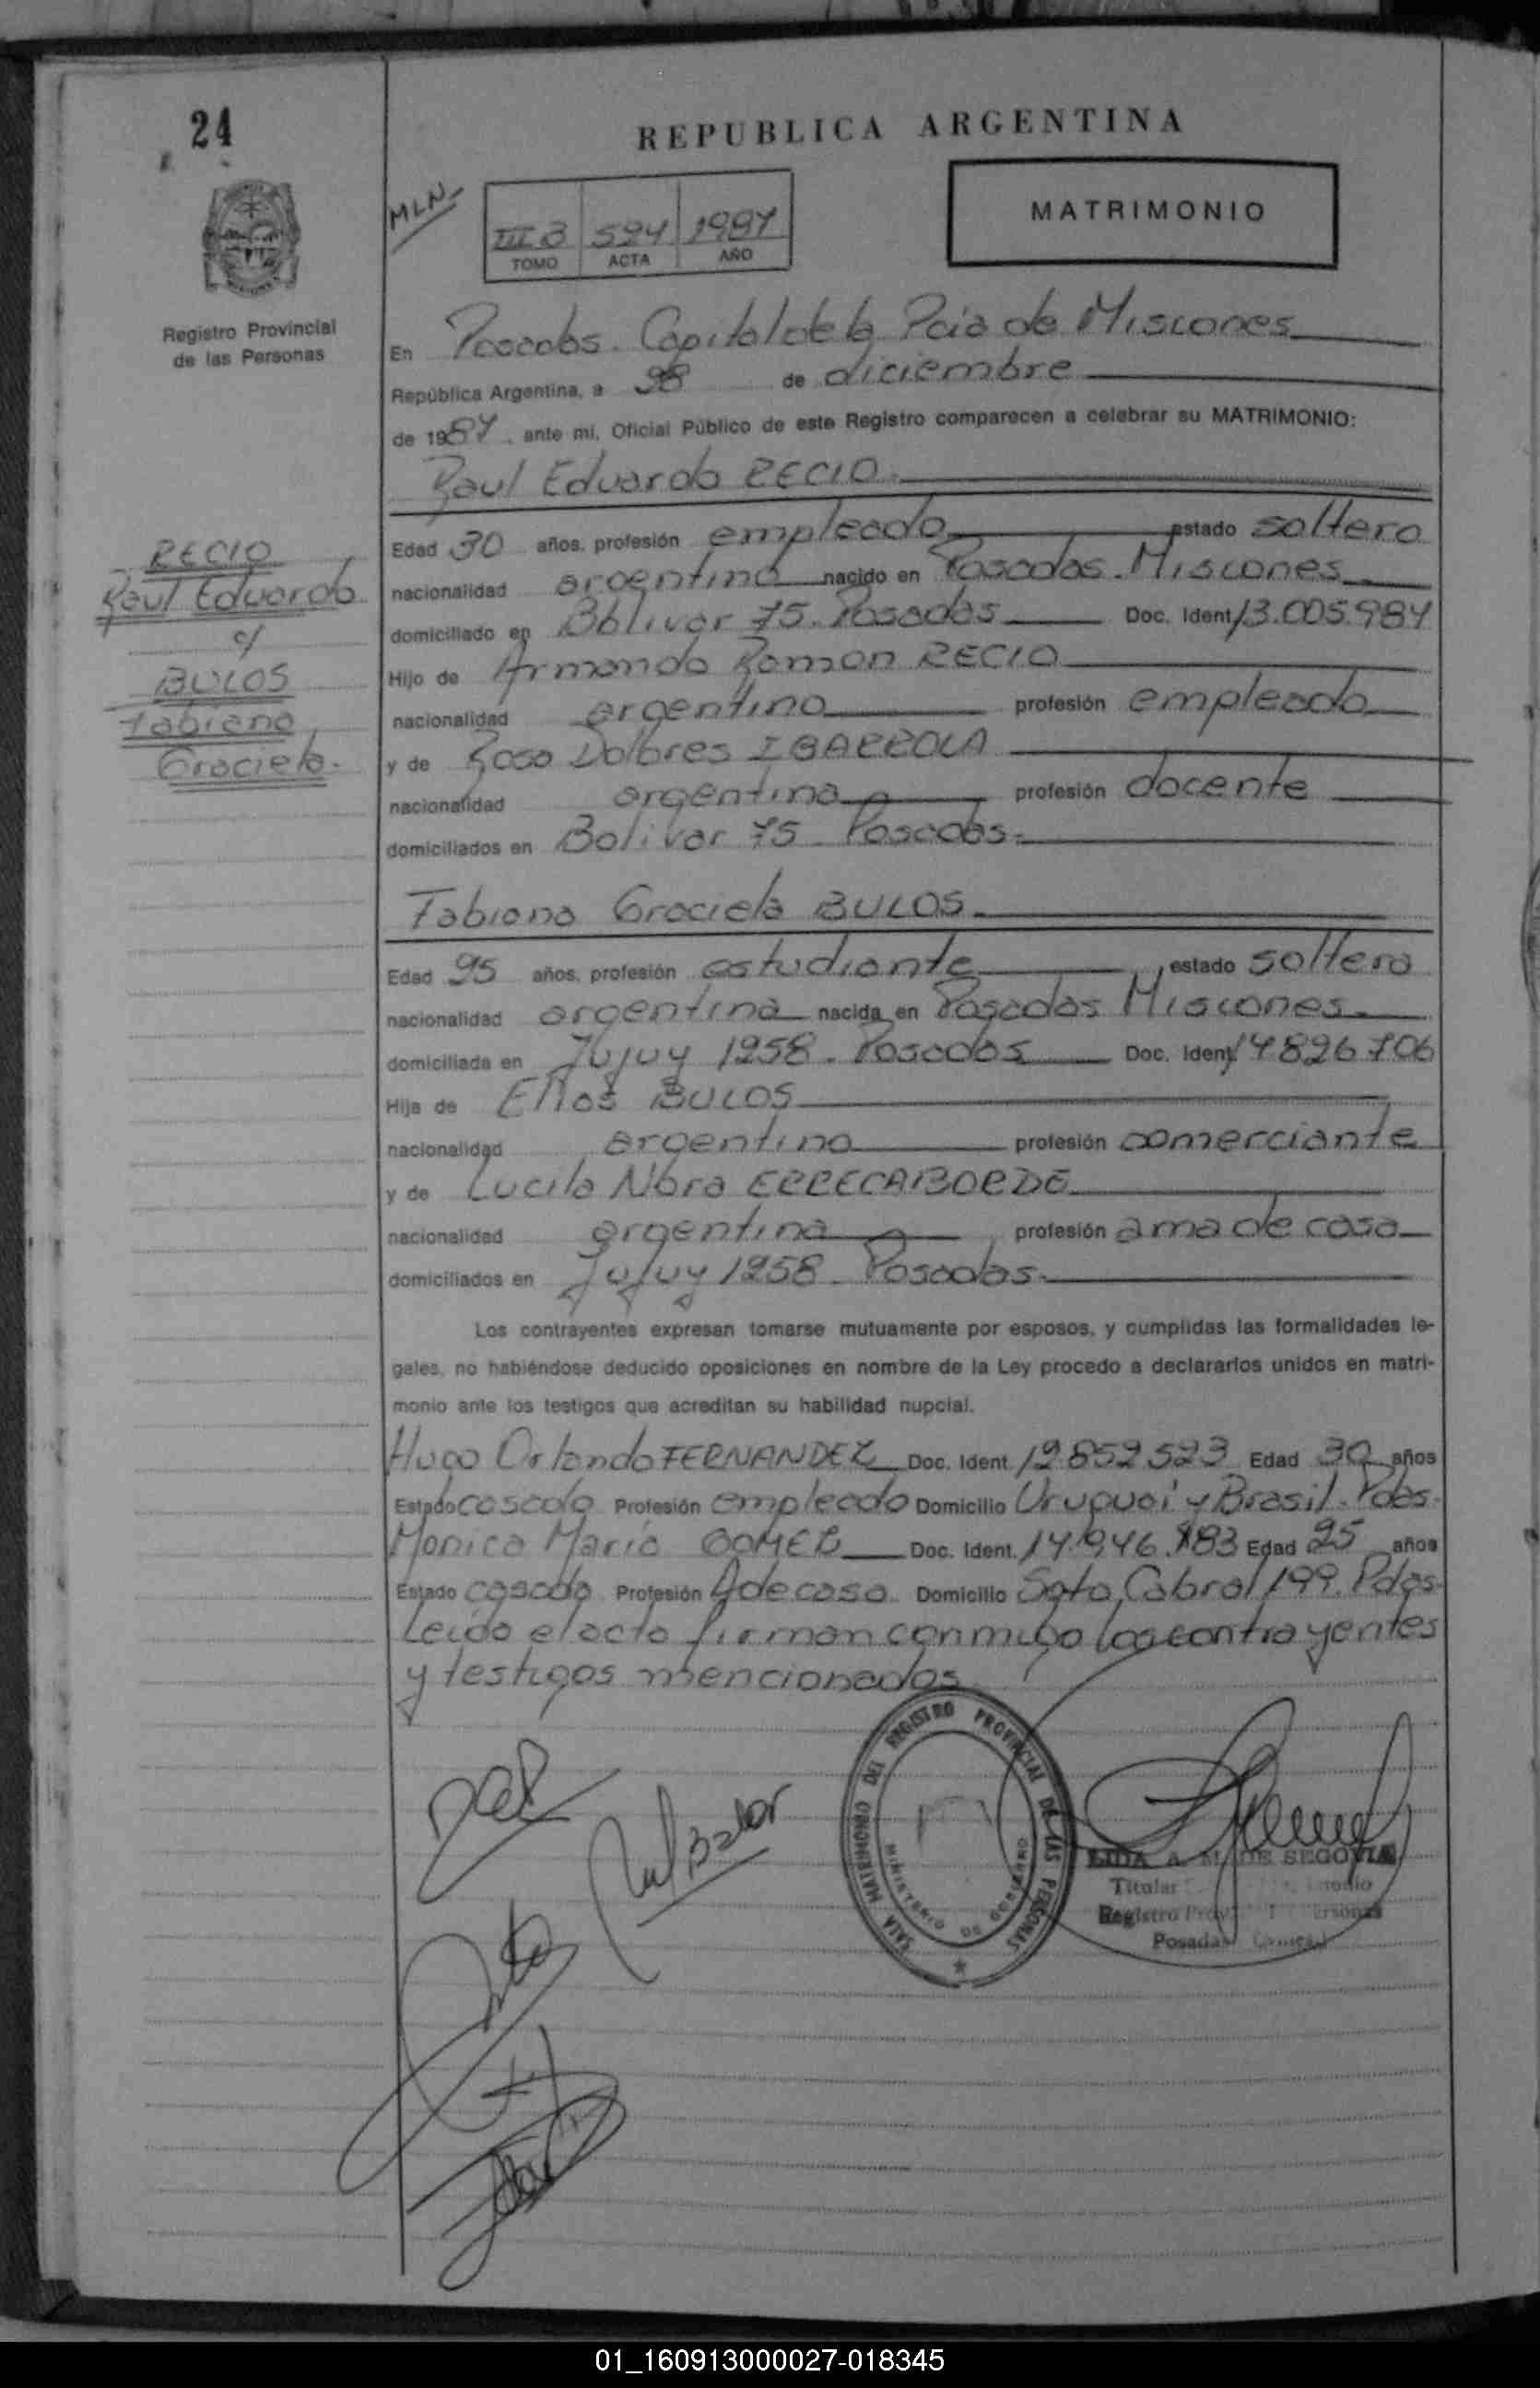 24
REPUBLICA ARGENTINA
MLN-
MATRIMONIO
III B 594 1987
TOMO ACTA AÑO
Registro Provincial
de las Personas
En Posadas. Capital de la Pcia de Misiones
República Argentina, a 28 de diciembre
de 1987, ante mi, Oficial Público de este Registro comparecen a celebrar su MATRIMONIO:
Raul Eduardo RECIO.
RECIO
Raul Eduardo
c/
BULOS
Fabiana
Graciela.
Edad 30 años, profesión empleado estado soltero
nacionalidad argentino nacido en Posadas. Misiones
domiciliado en Bolivar 75. Posadas Doc. Ident. 13.005.984
Hijo de Armando Ramon RECIO
nacionalidad argentino profesión empleado
y de Rosa Dolores IBARROLA
nacionalidad argentina profesión docente
domiciliados en Bolivar 75 - Posadas.
Fabiana Graciela BULOS.
Edad 25 años, profesión estudiante estado soltera
nacionalidad argentina nacida en Posadas Misiones.
domiciliada en Jujuy 1258. Posadas Doc. Ident. 14826706
Hija de Elias BULOS
nacionalidad argentino profesión comerciante
y de Lucila Nora ERRECABORDE
nacionalidad argentina profesión ama de casa
domiciliados en Jujuy 1258. Posadas.
Los contrayentes expresan tomarse mutuamente por esposos, y cumplidas las formalidades le-
gales, no habiéndose deducido oposiciones en nombre de la Ley procedo a declararlos unidos en matri-
monio ante los testigos que acreditan su habilidad nupcial.
Hugo Orlando FERNANDEZ Doc. Ident. 12.852.523 Edad 30 años
Estado casado Profesión empleado Domicilio Uruguai y Brasil. Pdas.
Monica Maria Doc. Ident. 14.946.183 Edad 25 años
Estado casada Profesión A de casa Domicilio Sgto Cabral 199. Pdas.
Leida el acta firman conmigo los contrayentes
y testigos mencionados
SALA MATRIMONIO DEL REGISTRO PROVINCIAL DE LAS PERSONAS
MINISTERIO DE GOBIERNO
LIDA A. M. DE SEGOVIA
Titular
Registro
Posadas
01_160913000027-018345